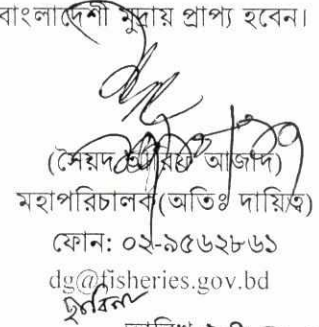 বাংলাদেশী মুদ্রায় প্রাপ্য হবেন।
(সৈয়দ আরিফ আজাদ)
মহাপরিচালক(অতিঃ দায়িত্ব)
ফোন: ০২-৯৫৬২৮৬১
dg@fisheries.gov.bd